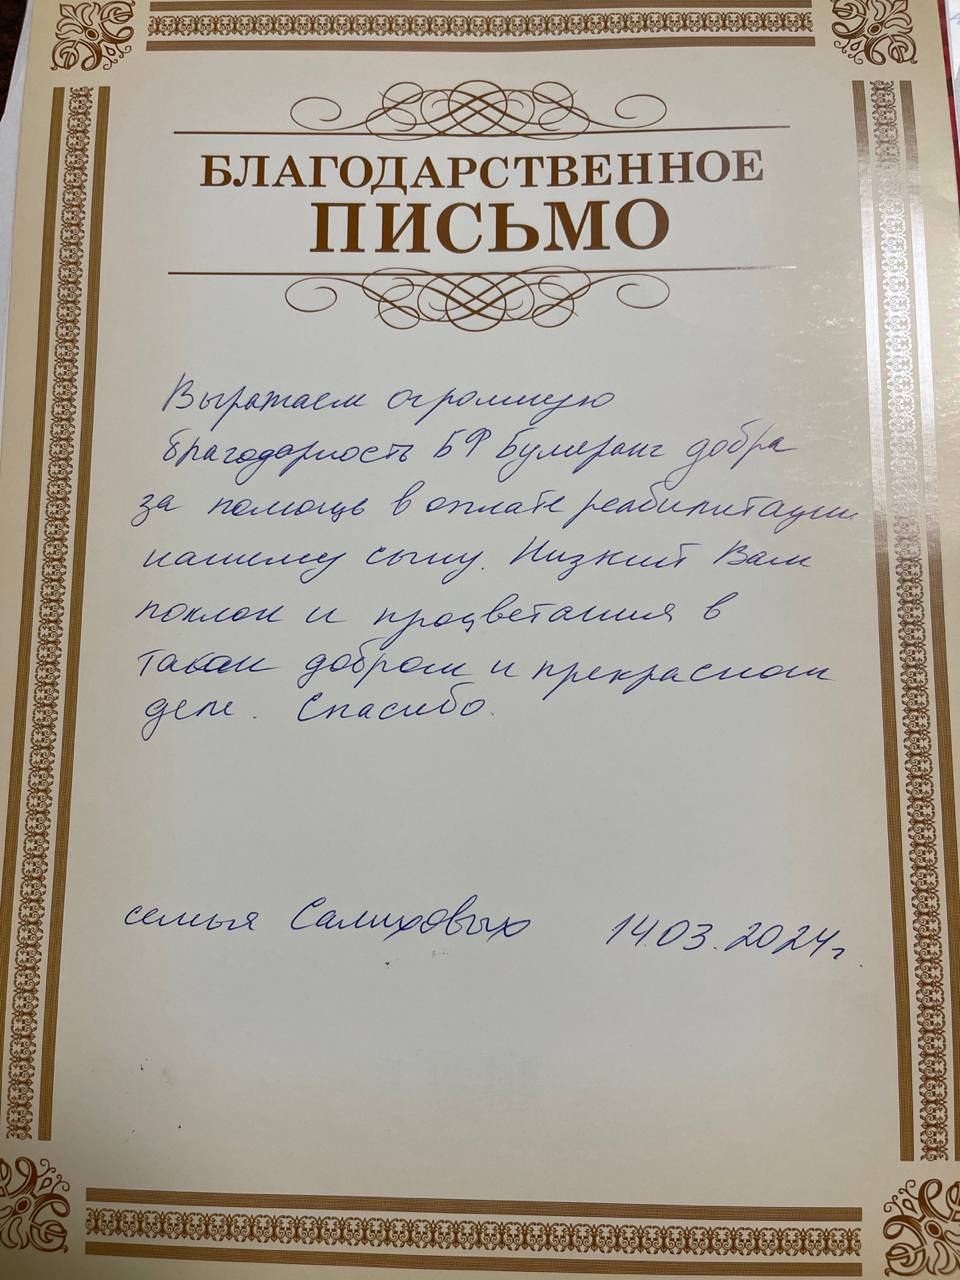 БЛАГОДАРСТВЕННОЕ
ПИСЬМО
Выражаем огромную
благодарность БФ Бумеранг добра
за помощь в оплате реабилитации
нашему сыну. Низкий Вам
поклон и процветания в
таком добром и прекрасном
деле. Спасибо.
семья Салиховых 14.03.2024г.